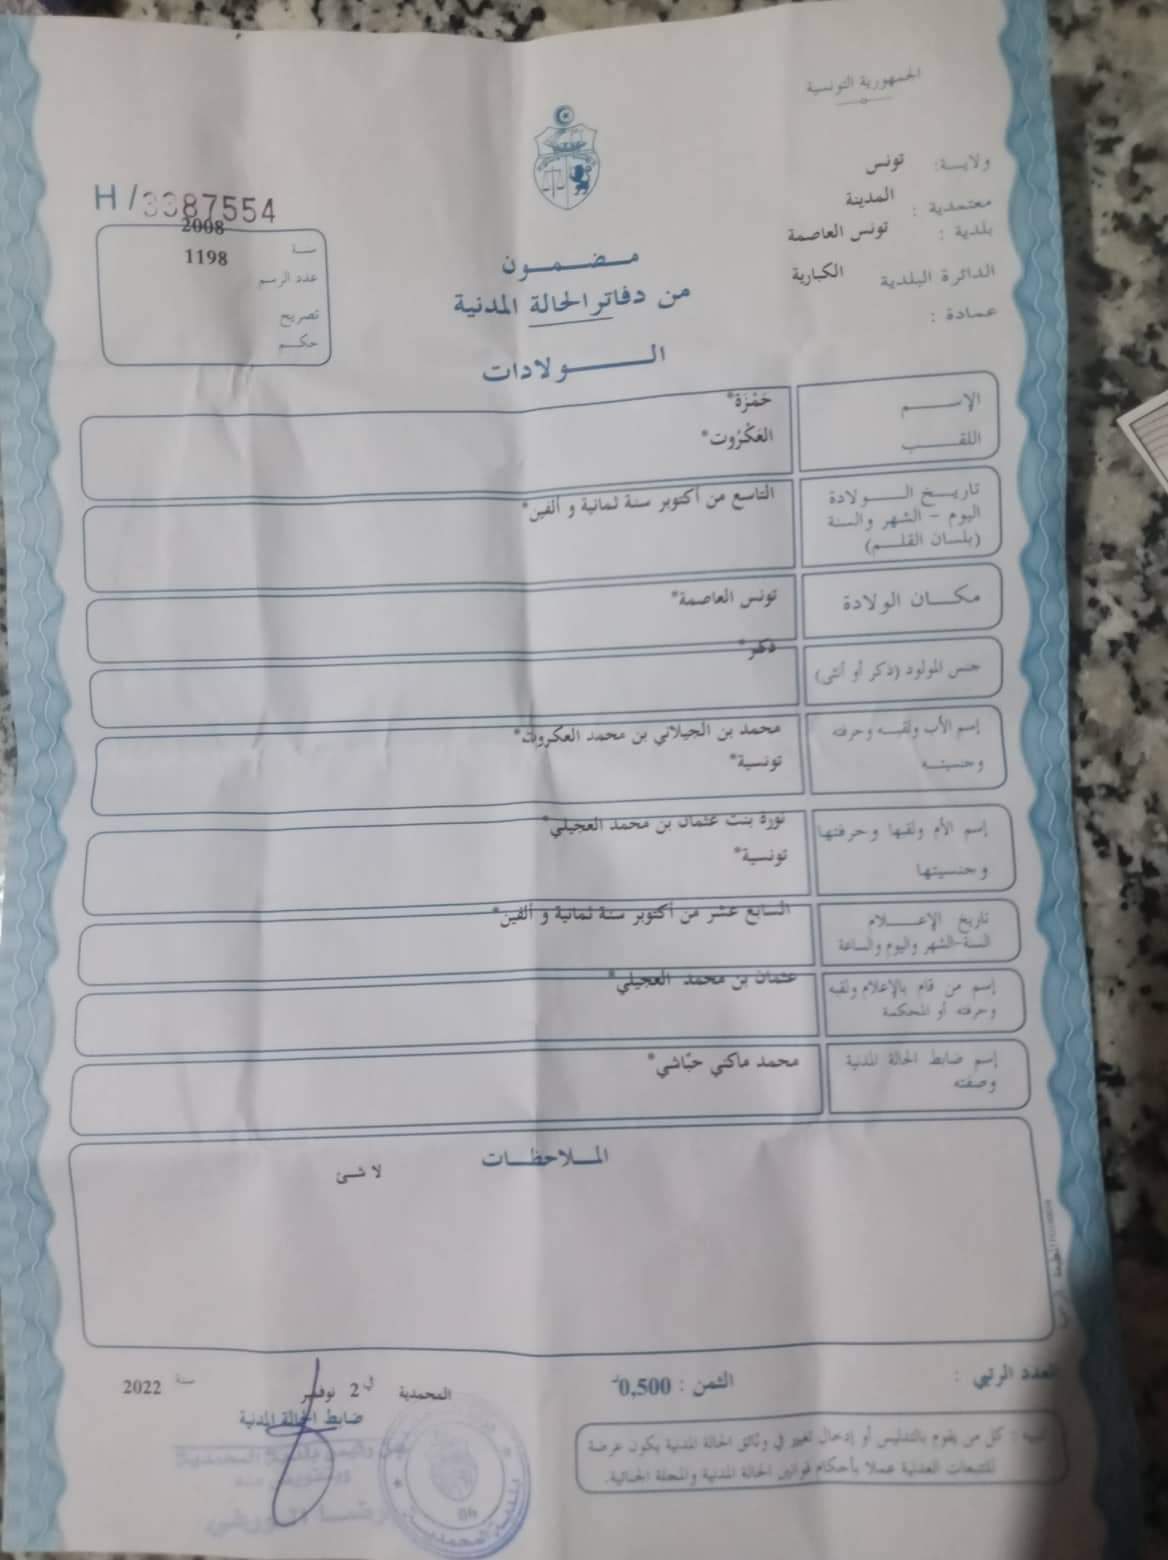 الجمهورية التونسية
ولايـة: تونس
معتمدية : المدينة
بلدية : تونس العاصمة
الدائرة البلدية الكبارية
عمادة :
H/3387554
سنـة 2008
عدد الرسم 1198
تصريح
حكـم
مـضـمـون
من دفاتر الحالة المدنية
الـــولادات
الإســـم حَمْزَة*
اللقـــب العَكْرُوت*
تاريـخ الـــولادة التاسع من أكتوبر سنة ثمانية و ألفين*
اليوم - الشهر والسنة
(بلسان القلـم)
مكـان الولادة تونس العاصمة*
جنس المولود (ذكر أو أنثى) ذكر*
إسم الأب ولقبـه وحرفته محمد بن الجيلاني بن محمد العكروت*
وجنسيتـه تونسية*
إسم الأم ولقبها وحرفتها نورة بنت عثمان بن محمد العجيلي*
وجنسيتها تونسية*
تاريخ الإعـــلام السابع عشر من أكتوبر سنة ثمانية و ألفين*
السنة-الشهر واليوم والساعة
إسم من قام بالإعلام ولقبه عثمان بن محمد العجيلي*
وحرفته أو المحكمة
إسم ضابط الحالة المدنية محمد ماكني حبّاشي*
وصفته
المـلاحظـات
لا شئ
العدد الرتبي :
الثمن : 0,500
المحمدية في 2 نوفمبر سنة 2022
ضابط الحالة المدنية
تنبيه : كل من يقوم بالتدليس أو إدخال تغيير في وثائق الحالة المدنية يكون عرضة
للتتبعات العدلية عملا بأحكام قوانين الحالة المدنية والمجلة الجنائية.